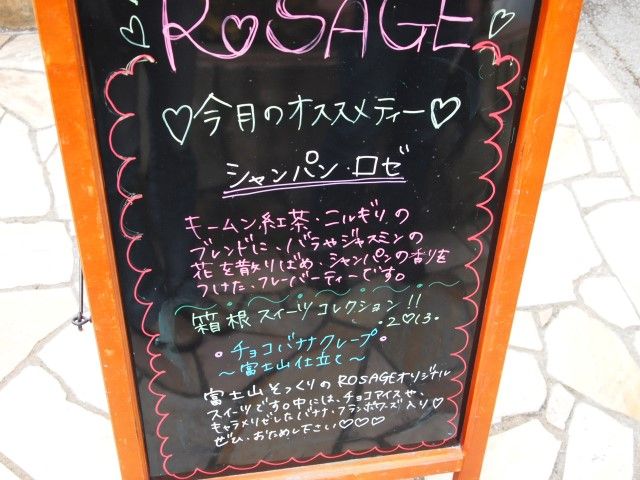 ROSAGE
♡今月のオススメティー♡
シャンパン・ロゼ
キームン紅茶・ニルギリの
ブレンドに、バラやジャスミンの
花を散りばめ、シャンパンの香りを
つけた、フレーバーティーです。
箱根スイーツコレクション!!
・2013・
・チョコバナナクレープ・
～富士山仕立て～
富士山そっくりのROSAGEオリジナル
スイーツです。中には、チョコアイスや、
キャラメリゼしたバナナ・フランボワーズ入り♡
ぜひ、おためし下さい♡♡♡